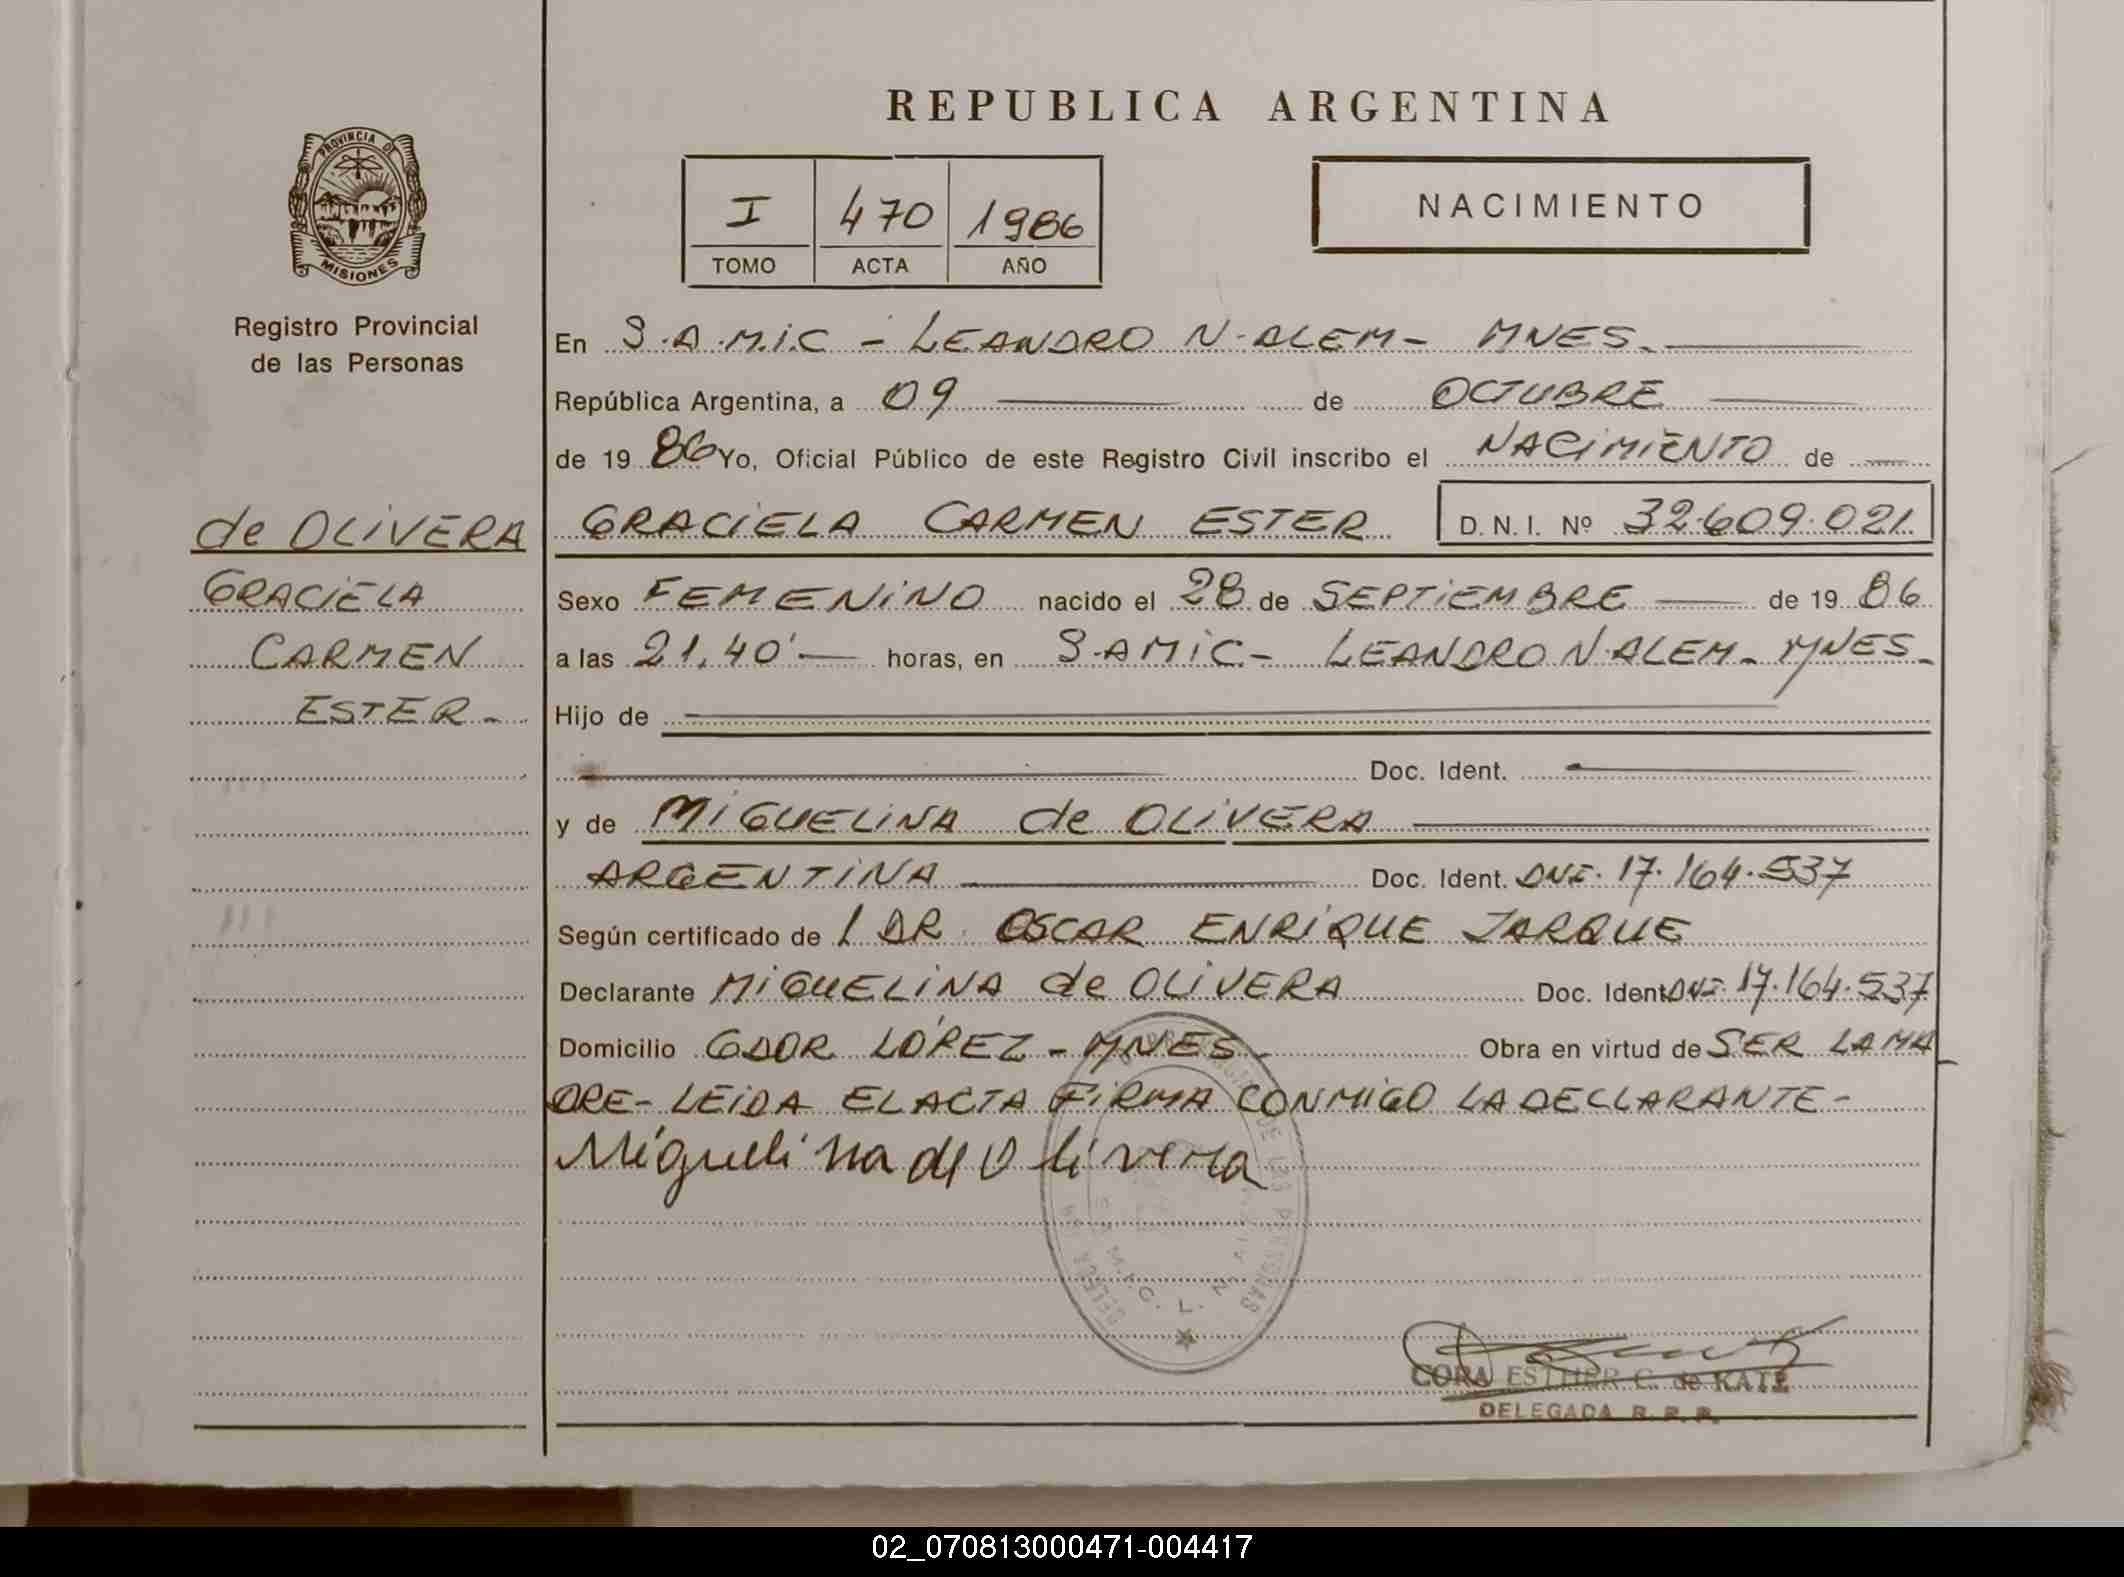 REPUBLICA ARGENTINA
PROVINCIA DE
MISIONES
Registro Provincial
de las Personas
I 470 1986
TOMO ACTA AÑO
NACIMIENTO
En S.A.M.i.C - LEANDRO N. ALEM - MNES.
República Argentina, a 09 de OCTUBRE
de 1986 Yo, Oficial Público de este Registro Civil inscribo el NACiMiENTO de
de OLiVERA
GRACiELA
CARMEN
ESTER -
GRACiELA CARMEN ESTER D. N. I. Nº 32.609.021
Sexo FEMENiNO nacido el 28 de SEPTiEMBRE de 1986
a las 21,40' horas, en S.AMiC - LEANDRO N. ALEM - MNES -
Hijo de
Doc. Ident.
y de MiGUELiNA de OLiVERA
ARGENTiNA Doc. Ident. DNI. 17.164.537
Según certificado de l DR. OSCAR ENRiQUE JARQUE
Declarante MiGUELiNA de OLiVERA Doc. Ident DNI. 17.164.537
Domicilio GDOR LÓPEZ - MNES - Obra en virtud de SER LA MA
DRE - LEiDA EL ACTA FiRMA CONMiGO LA DECLARANTE -
Miguelina de Olivera
S.A.M.I.C. L. N.
CORA ESTHER C. de KATZ
DELEGADA R. P. P.
02_070813000471-004417